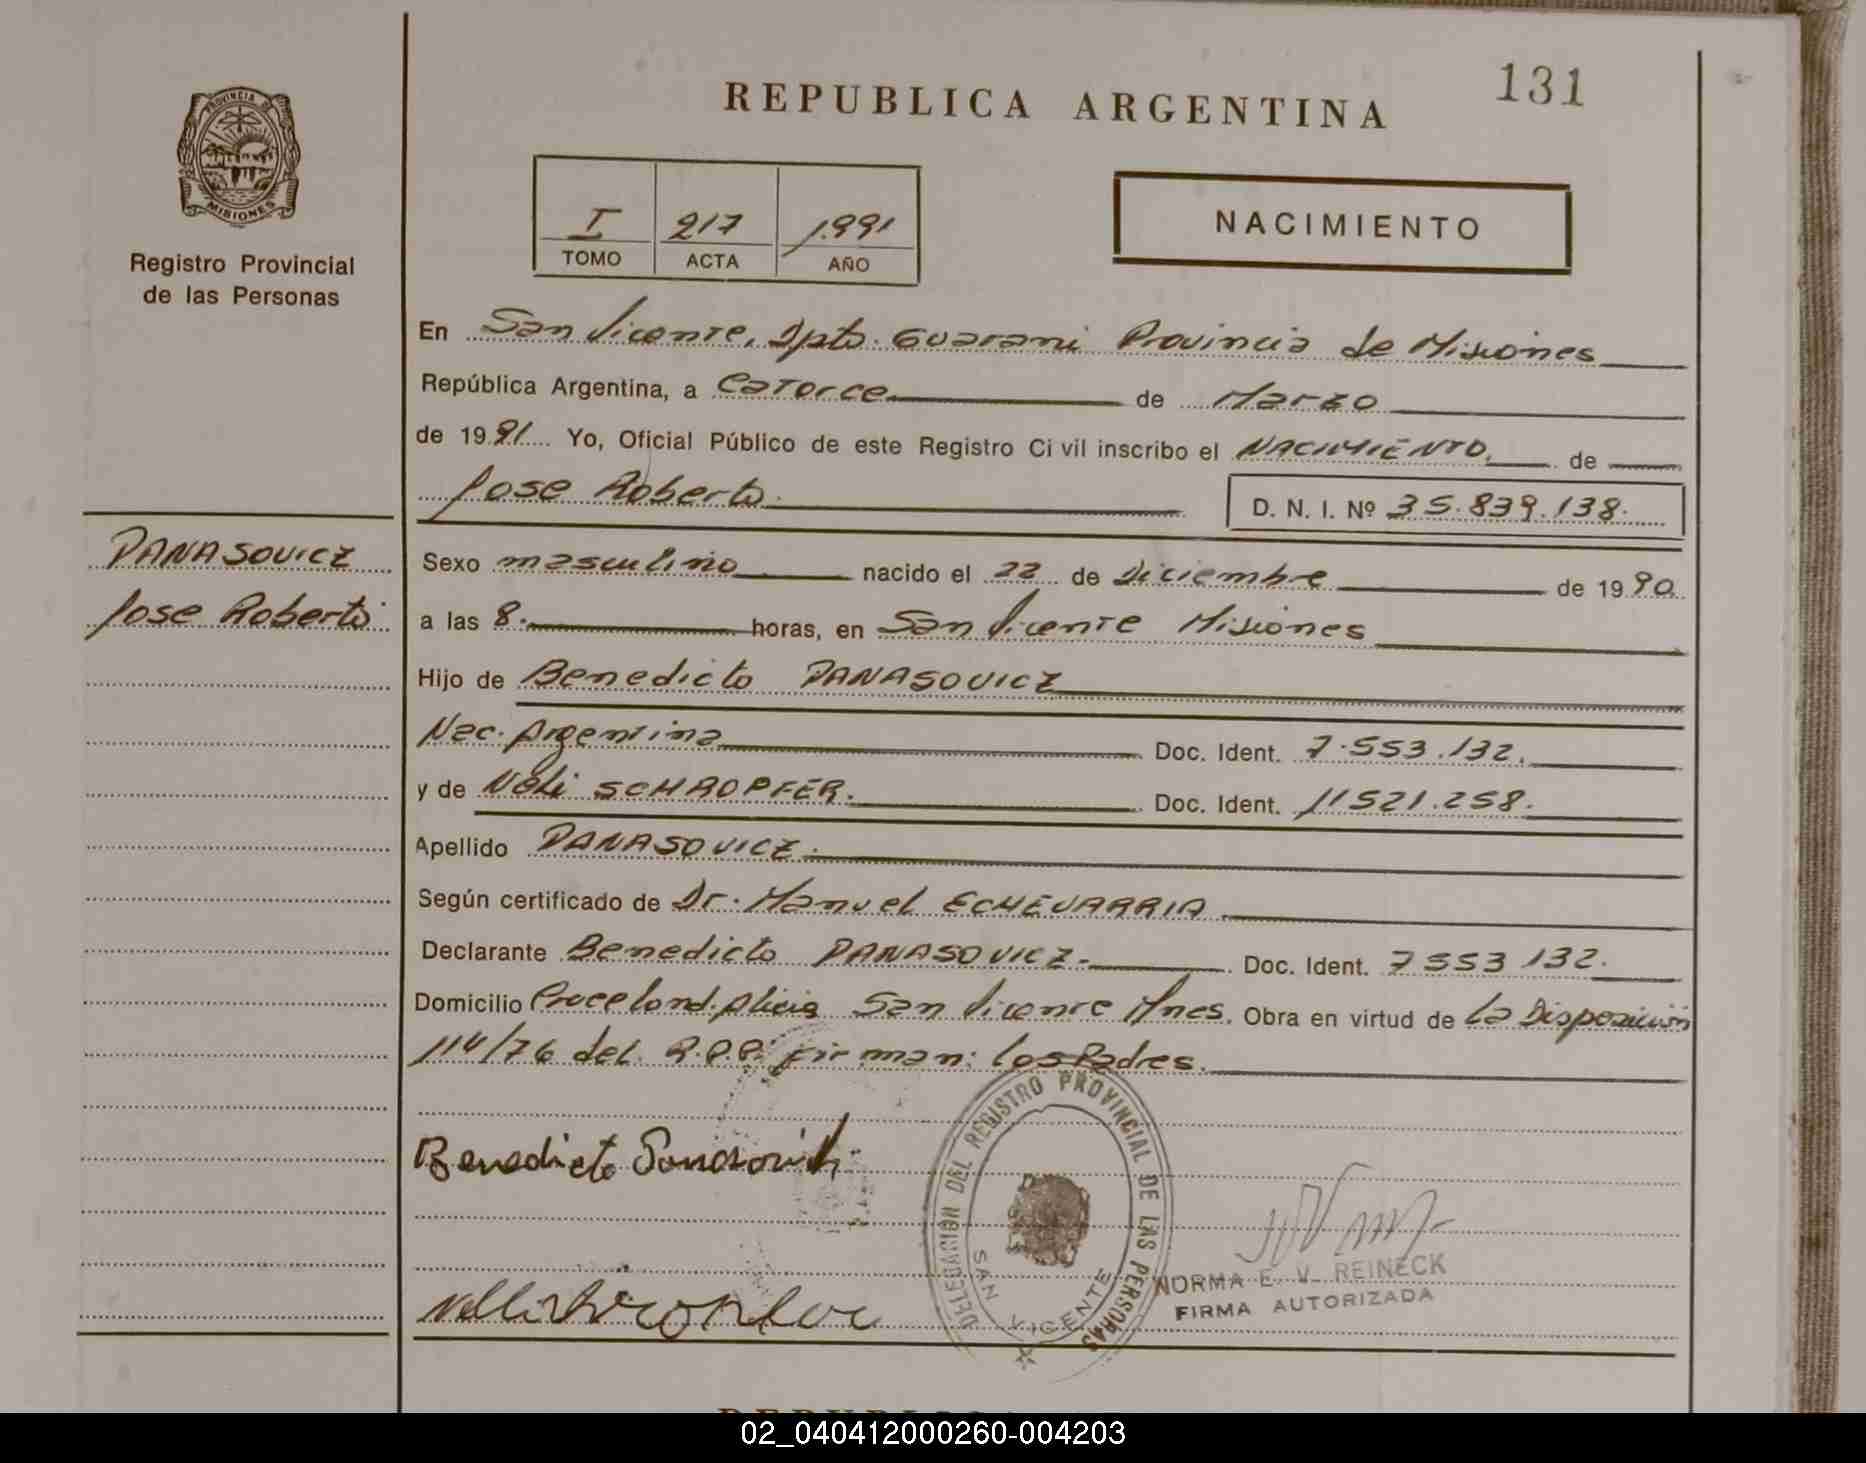 131
REPUBLICA ARGENTINA
PROVINCIA DE
MISIONES
Registro Provincial
de las Personas
I 217 1.991
TOMO ACTA AÑO
NACIMIENTO
En San Vicente, Dpto. Guarani Provincia de Misiones
República Argentina, a Catorce de Marzo
de 1991 Yo, Oficial Público de este Registro Civil inscribo el NACIMIENTO. de
Jose Roberto.
D. N. I. Nº 35.839.138.
PANASOVICZ
Jose Roberto
Sexo masculino nacido el 22 de Diciembre de 1990.
a las 8. horas, en San Vicente Misiones
Hijo de Benedicto PANASOVICZ
Nac. Argentina Doc. Ident. 7.553.132.
y de Neli SCHROPFER. Doc. Ident. 11521.258.
Apellido PANASOVICZ.
Según certificado de Dr. Manuel ECHEVARRIA
Declarante Benedicto PANASOVICZ. Doc. Ident. 7553132.
Domicilio Picce Alicia San Vicente Mnes. Obra en virtud de la Disposición
114/76 del R.P.P. firman: los Padres.
Benedicto
DELEGACION DEL REGISTRO PROVINCIAL DE LAS PERSONAS
SAN VICENTE
NORMA E. V. REINECK
FIRMA AUTORIZADA
02_040412000260-004203